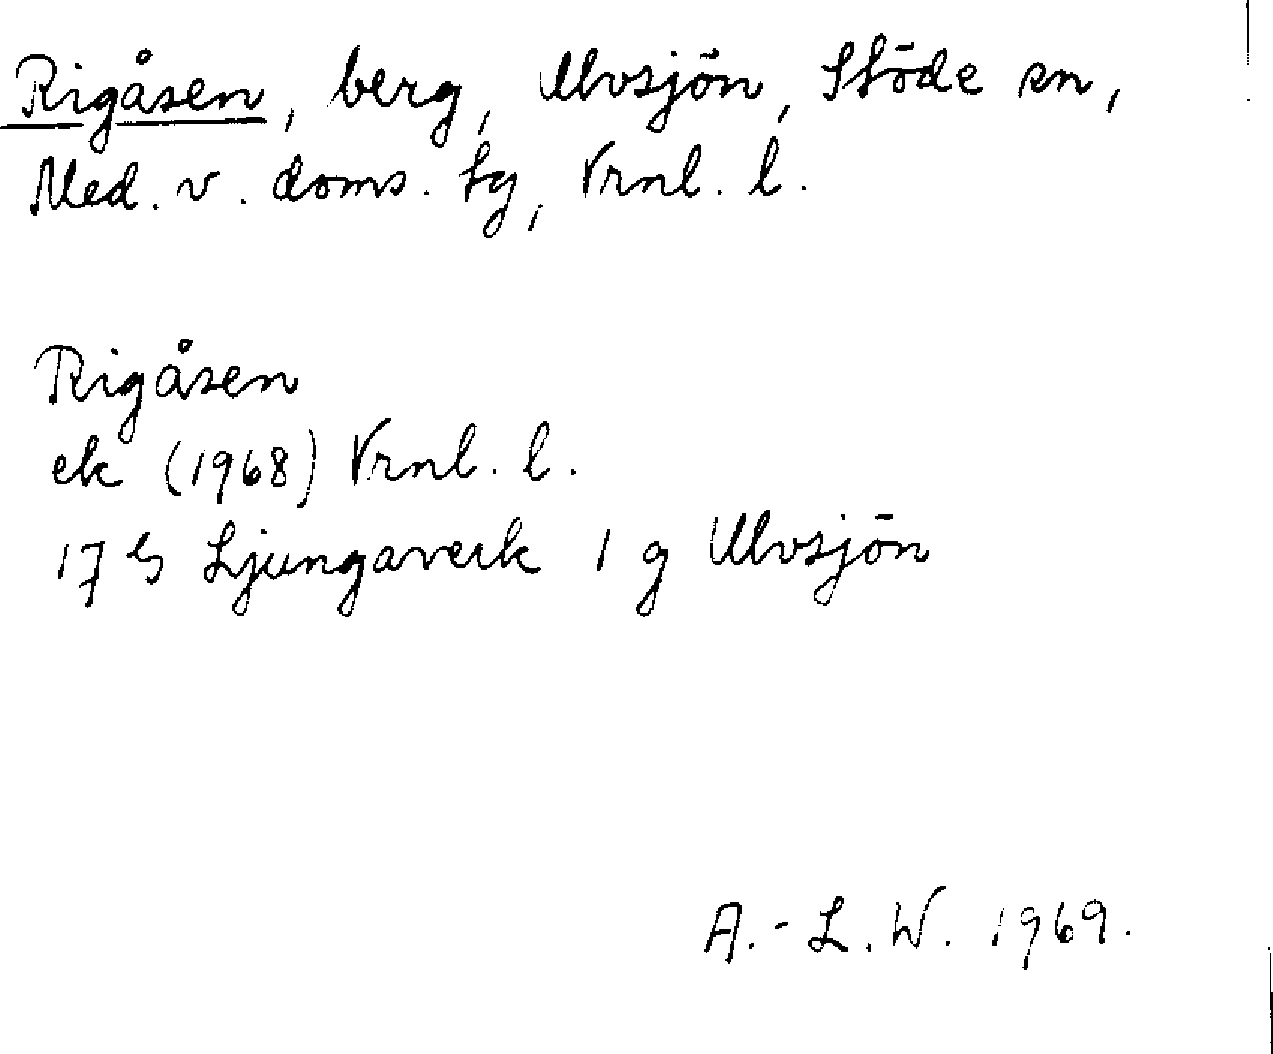 Rigåsen, berg, Ulvsjön, Stöde sn,
Med. v. doms. tg, Vrnl. l.
Rigåsen
ek (1968) Vrnl. l.
17 G Ljungaverk 1 g Ulvsjön
A.-L.W. 1969.